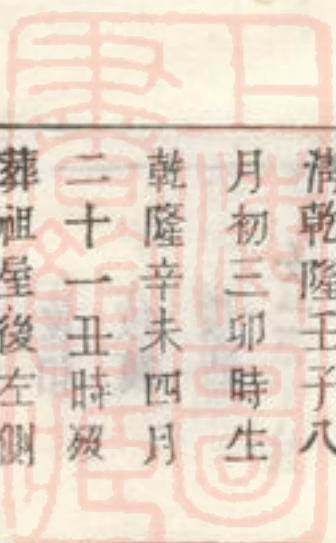 清乾隆壬子八
月初三卯時生
乾隆辛未四月
二十一丑時殁
葬祖屋後左側